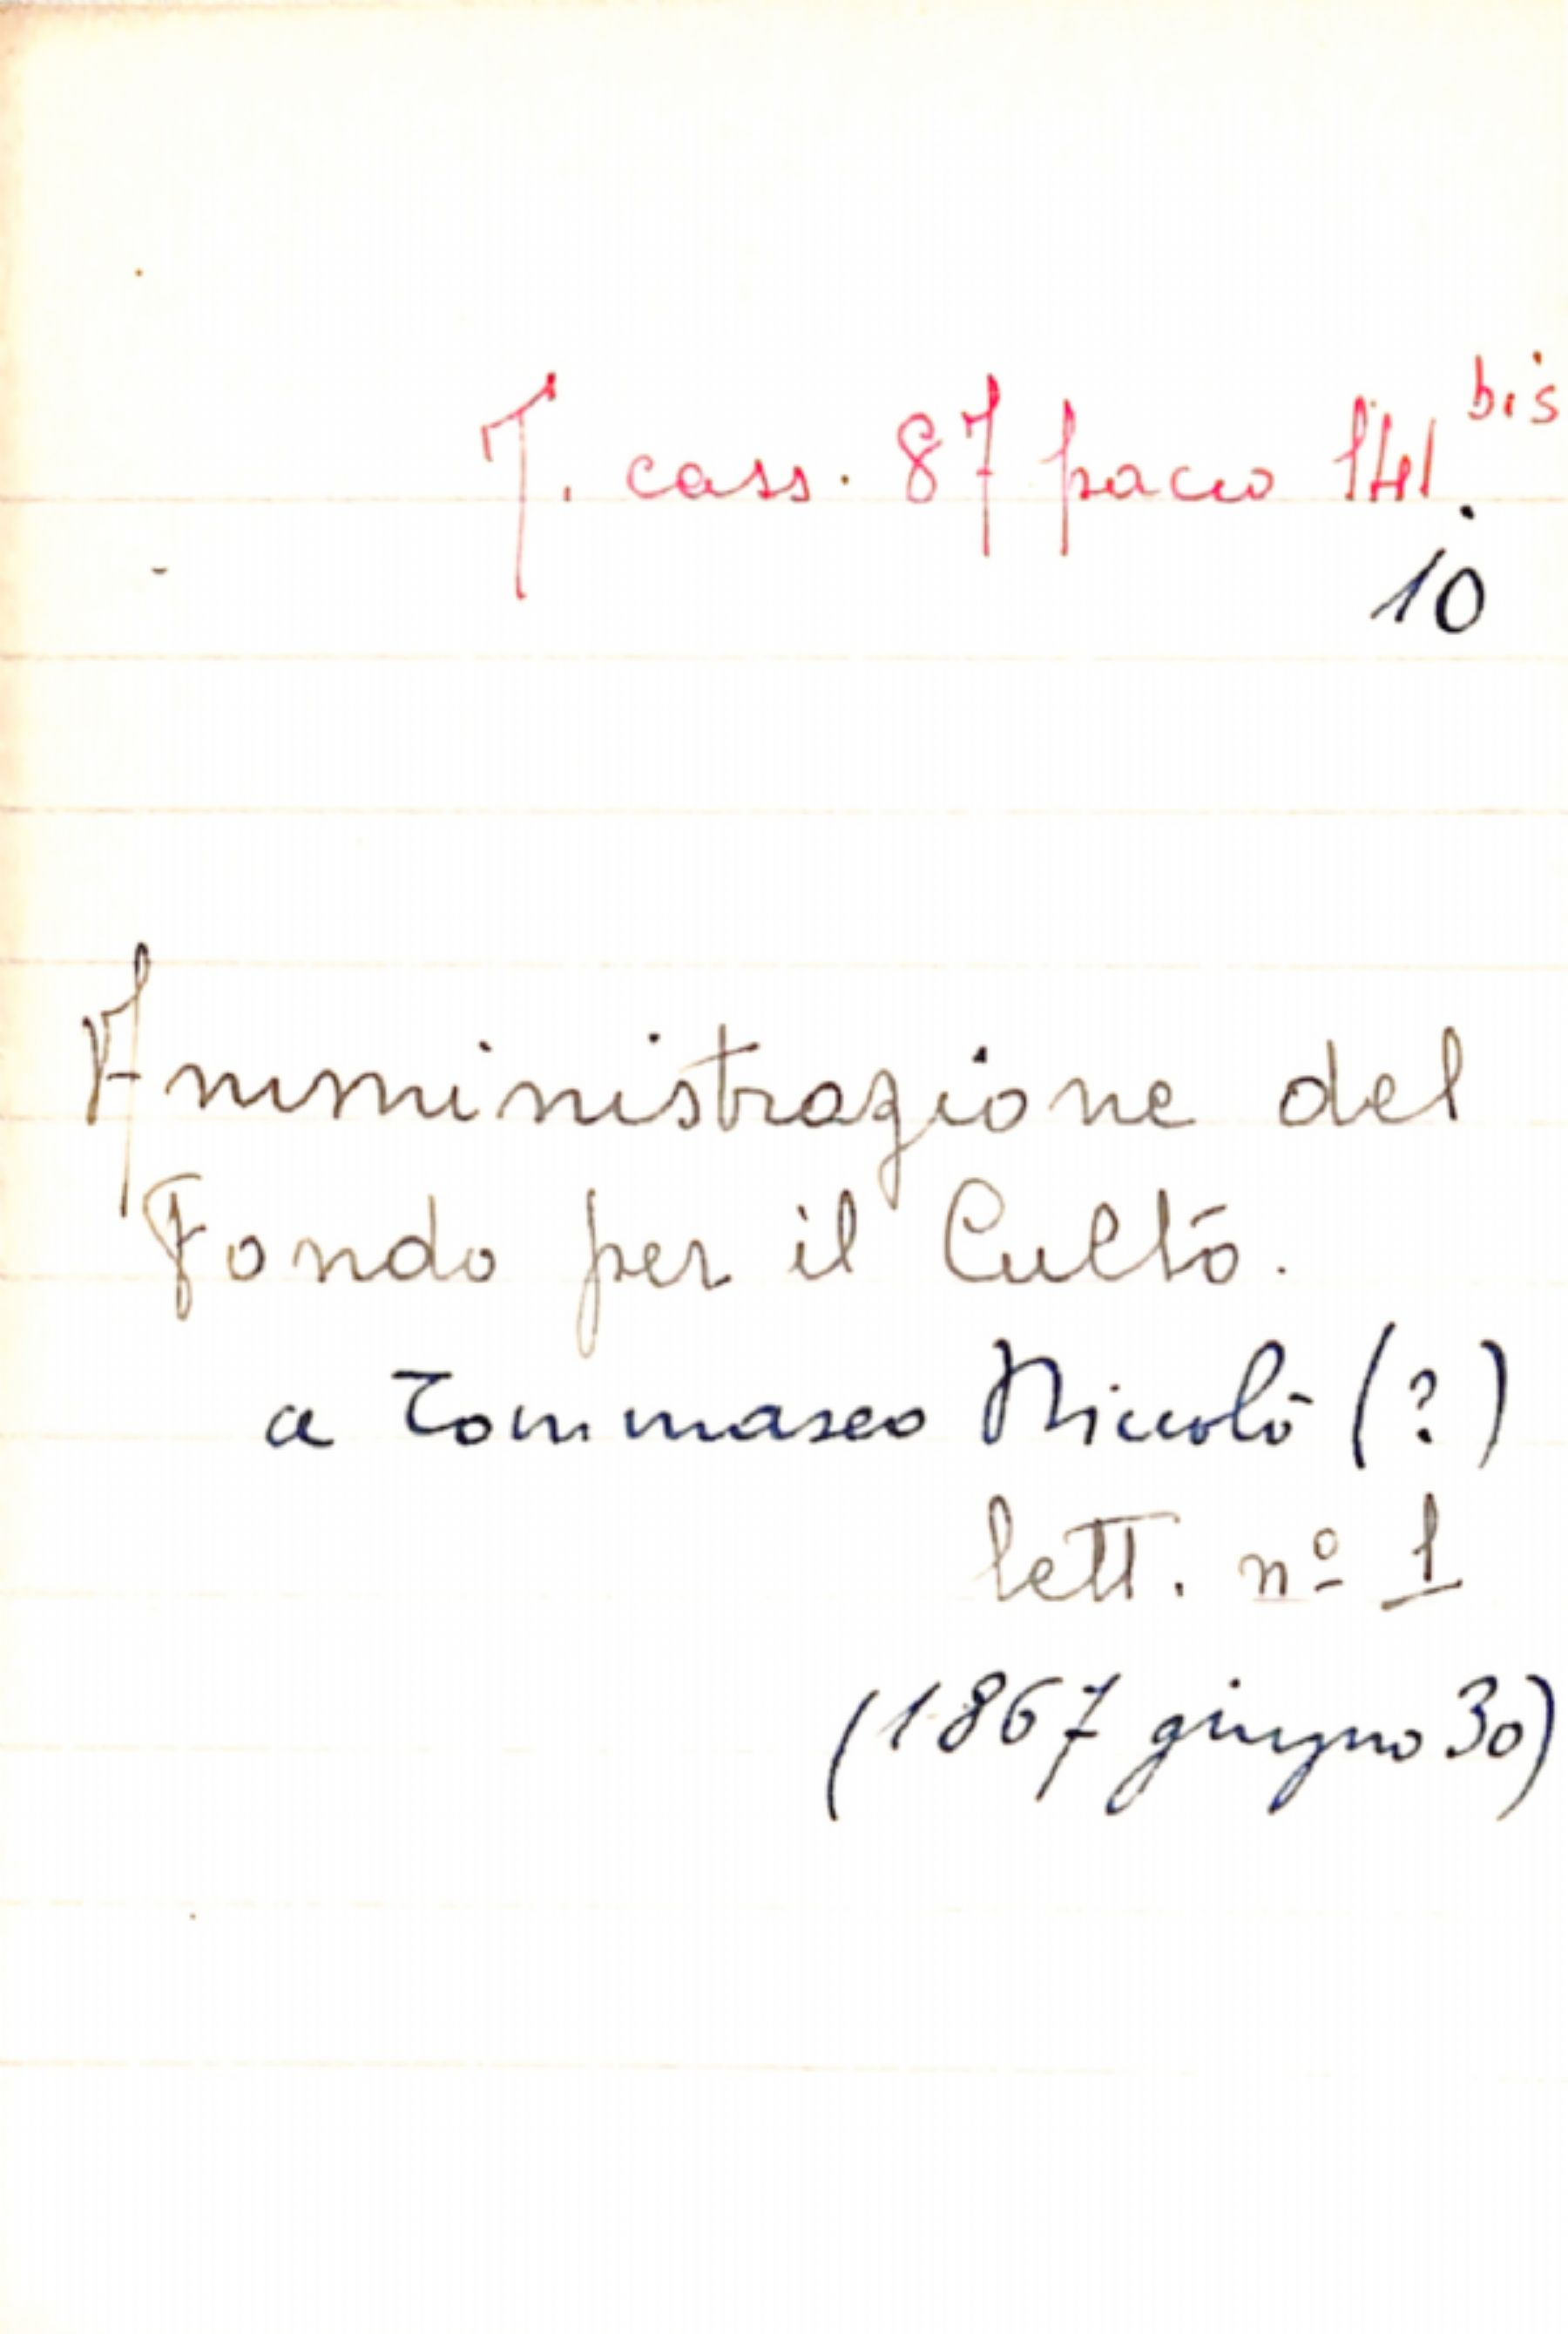 T. cass. 87 pacco 141.bis
10
Amministrazione del
Fondo per il Culto.
a Tommaseo Niccolò (?)
lett. nº 1
(1867 giugno 30)